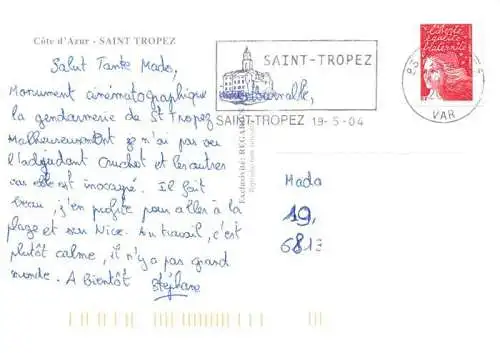 Côte d'Azur - SAINT TROPEZ
Salut Tante Mado,
Monument cinématographique,
la gendarmerie de St Tropez.
Malheureusement je n'ai pas vu
l'adjudant Cruchot et les autres
car elle est inoccupé. Il fait
beau, j'en profite pour aller à la
plage et sur Nice. Au travail, c'est
plutôt calme, il n'y a pas grand
monde. A Bientôt Stéphane
SAINT-TROPEZ
SAINT-TROPEZ 19-5-04
VAR
liberté
égalité
fraternité
Exclusivité: REGA
Mado
19,
681